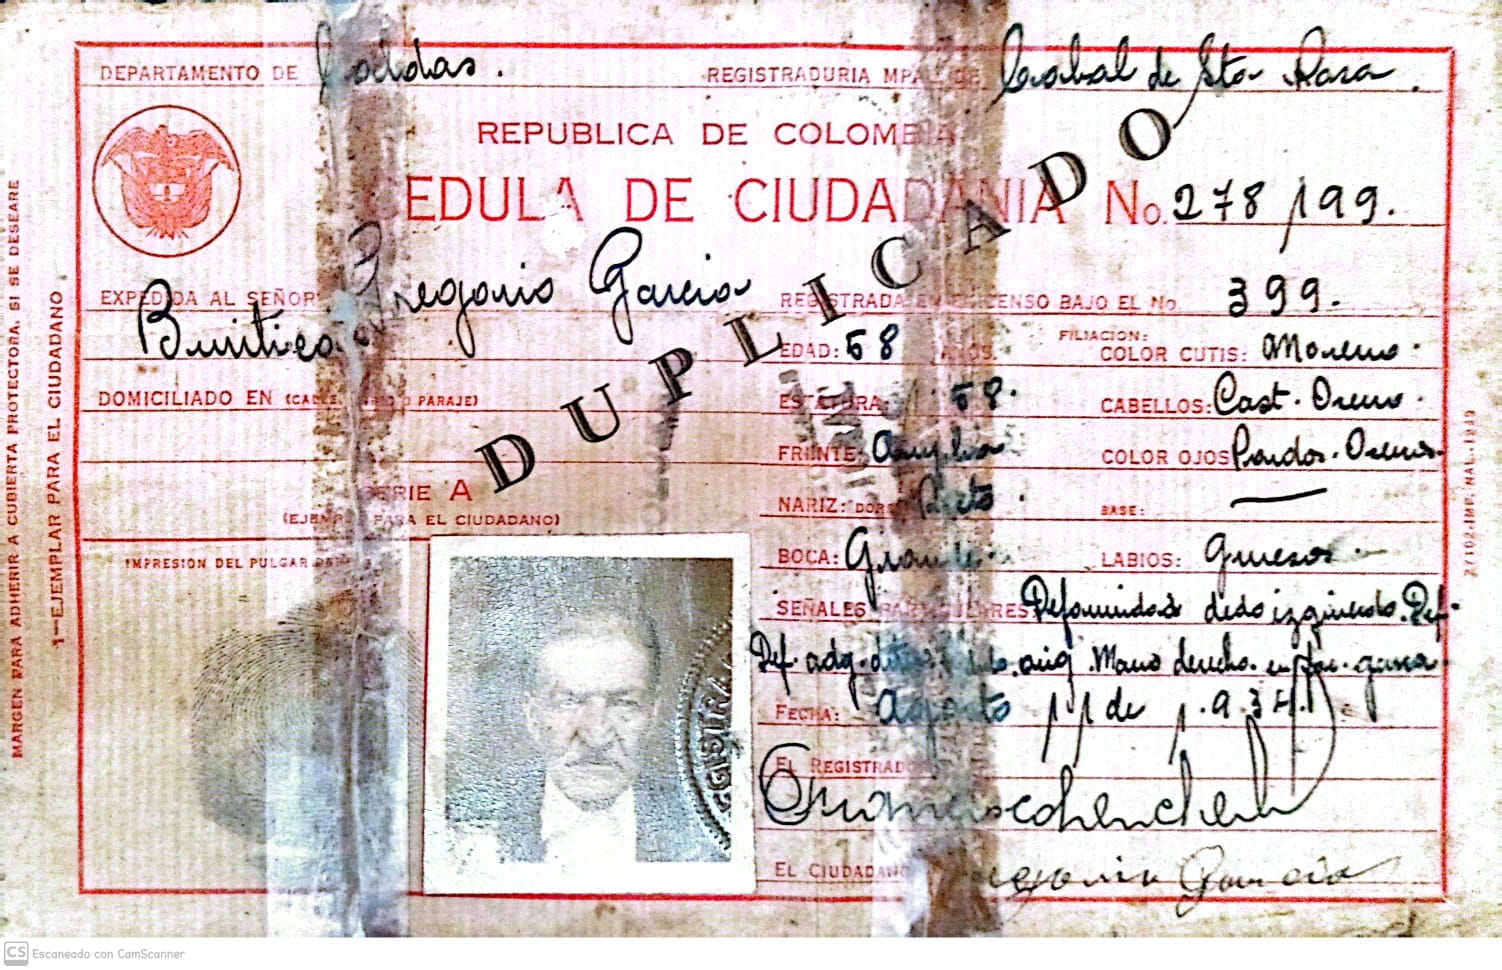 DEPARTAMENTO DE Caldas. REGISTRADURIA MPAL. DE Cabal de Sta Rosa.
REPUBLICA DE COLOMBIA
CEDULA DE CIUDADANIA No. 278,199.
EXPEDIDA AL SEÑOR Gregorio Garcia
Buitico.
REGISTRADA EN EL CENSO BAJO EL No. 399.
EDAD: 58 AÑOS. FILIACION: COLOR CUTIS: Moreno.
DOMICILIADO EN (CALLE, O PARAJE) ESTATURA 58. CABELLOS: Cast. Oscuro.
FRENTE: Amplia COLOR OJOS Pardos. Oscuros.
SERIE A NARIZ: DORSO Recto. BASE:
(EJEMPLAR PARA EL CIUDADANO)
IMPRESION DEL PULGAR BOCA: Grande. LABIOS: Gruesos.
SEÑALES PARTICULARES: dedo izquierdo. Def.
Def. adq. Mano derecha.
FECHA: Agosto 11 de 1.934.
EL REGISTRADOR
EL CIUDADANO Gregorio Garcia
DUPLICADO
REGISTRA
MARGEN PARA ADHERIR A CUBIERTA PROTECTORA, SI SE DESEARE
1—EJEMPLAR PARA EL CIUDADANO
CS Escaneado con CamScanner